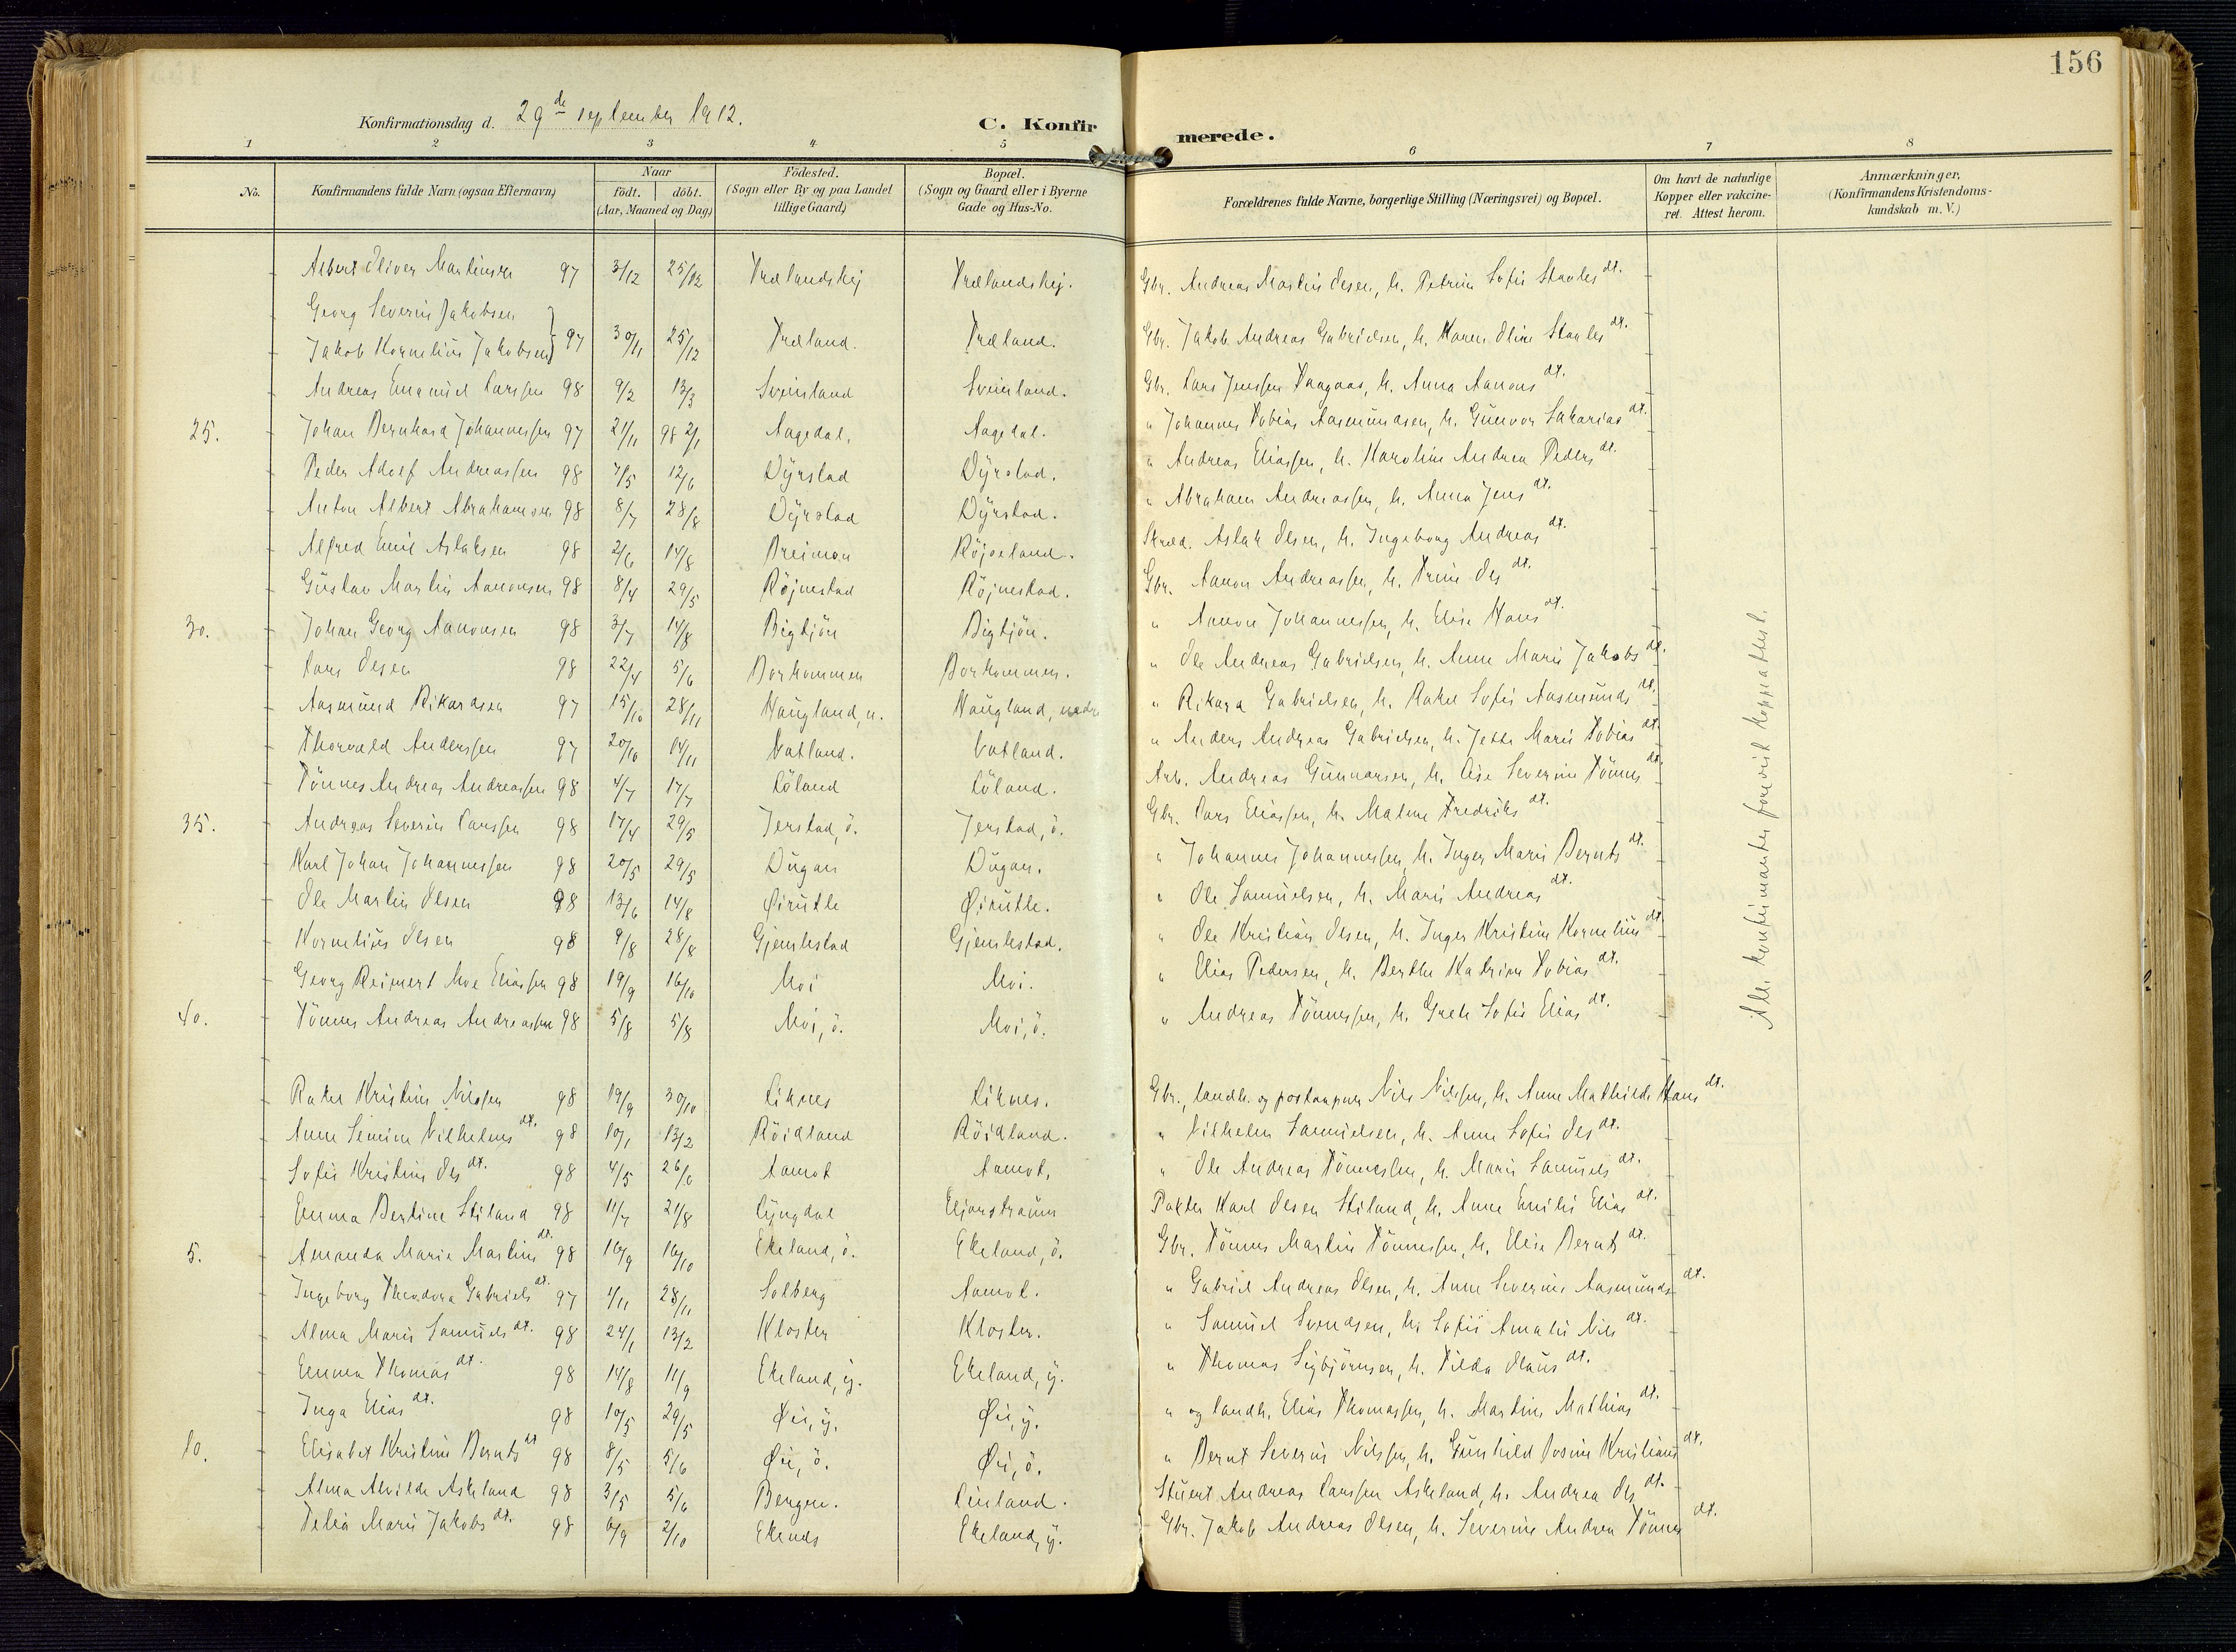 156
Konfirmationsdag d. 29de september 1912.
C. Konfirmerede.
1 2 3 4 5 6 7 8
No. Konfirmandens fulde Navn (ogsaa Efternavn) Naar födt. döbt. (Aar, Maaned og Dag) Födested. (Sogn eller By og paa Landet tillige Gaard) Bopæl. (Sogn og Gaard eller i Byerne Gade og Hus-No. Forældrenes fulde Navne, borgerlige Stilling (Næringsvei) og Bopæl. Om havt de naturlige Kopper eller vakcineret. Attest herom. Anmærkninger, (Konfirmandens Kristendomskundskab m. V.)
Albert Oliver Martinsen 97 3/12 25/12 Trælandshej Trælandshej. Gbr. Andreas Martin Olsen, h. Petrine Sofie Staales dt.
Georg Severin Jakobsen
Jakob Kornelius Jakobsen 97 30/11 25/12 Træland. Træland. Gbr. Jakob Andreas Gabrielsen, h. Karen Oline Staales dt.
Andreas Emanuel Larssen 98 9/2 13/3 Svinland Svinland. Gbr. Lars Jenssen Haagaas, h. Anna Aanons dt.
25. Johan Bernhard Johannessen 97 21/11 98 2/1 Aagedal. Aagedal. " Johannes Tobias Aasmundsen, h. Gunvor Sakarias dt.
Peder Adolf Andreassen 98 7/5 12/6 Dyrstad Dyrstad. " Andreas Eliassen, h. Karoline Andrea Peders dt.
Anton Albert Abrahamsen 98 8/7 28/8 Dyrstad Dyrstad. " Abraham Andreassen, h. Anna Jens dt.
Alfred Emil Aslaksen 98 2/6 14/8 Dreimon Röjseland. Skræd. Aslak Olsen, h. Ingeborg Andreas dt.
Gustav Martin Aanonsen 98 8/4 29/5 Röjnestad Röjnestad. Gbr. Aanon Andreassen, h. Trine Ols dt.
30. Johan Georg Aanonsen 98 3/7 14/8 Bigtjön Bigtjön. " Aanon Johannessen, h. Elise Hans dt.
Lars Olsen 98 22/4 5/6 Borkommen Borkommen. " Ole Andreas Gabrielsen, h. Anne Marie Jakobs dt.
Aasmund Rikardsen 97 15/10 28/11 Haugland, n. Haugland, nedre " Rikard Gabrielsen, h. Rakel Sofie Aasmunds dt.
Thorvald Anderssen 97 20/10 14/11 Vatland. Vatland. " Anders Andreas Gabrielsen, h. Jette Marie Tobias dt.
Tönnes Andreas Andreassen 98 4/7 17/7 Löland Löland. Arb. Andreas Gunnarsen, h. Lise Severine Tönnes dt.
35. Andreas Severin Larssen 98 17/4 29/5 Jerstad, ö. Jerstad, ö. Gbr. Lars Eliassen, h. Malene Fredriks dt.
Karl Johan Johannessen 98 20/5 29/5 Dugan Dugan. " Johannes Johannessen, h. Inger Marie Bernts dt.
Ole Martin Olsen 98 13/6 14/8 Øisutle Øisutle. " Ole Samuelsen, h. Marie Andreas dt.
Kornelius Olsen 98 9/8 28/8 Gjemlestad Gjemlestad. " Ole Kristian Olsen, h. Inger Kristine Kornelius dt.
Georg Reinert Moe Eliassen 98 19/9 16/10 Moi Moi. " Elias Pedersen, h. Berthe Katrine Tobias dt.
40. Tönnes Andreas Andreassen 98 5/8 5/8 Moi, ö. Moi, ö. " Andreas Tönnessen, h. Grete Sofie Elias dt.
Alle konfirmanter forevist koppeattest.
Rakel Kristine Nilssen 98 19/9 30/10 Liknes Liknes. Gbr., landh. og postaapner Nils Nilssen, h. Anne Mathilde Hans dt.
Anne Semine Vilhelms dt. 98 10/1 13/2 Röidland Röidland. " Vilhelm Samuelsen, h. Anne Sofie Ols dt.
Sofie Kristine Ols dt. 98 4/5 26/6 Aamot Aamot. " Ole Andreas Tönnessen, h. Marie Samuels dt.
Emma Bertine Stiland 98 11/7 21/8 Lyngdal Eljarstraum Pakter Karl Olsen Stiland, h. Anne Emilie Elias dt.
5. Amanda Marie Martins dt. 98 16/9 16/10 Ekeland, ö. Ekeland, ö. Gbr. Tönnes Martin Tönnessen, h. Elise Bernts dt.
Ingeborg Theodora Gabriels dt. 97 4/11 28/11 Solberg Aamot. " Gabriel Andreas Olsen, h. Anne Severine Aasmunds dt.
Alma Marie Samuels dt. 98 24/1 13/2 Kloster Kloster. " Samuel Svendsen, h. Sofie Amalie Nils dt.
Emma Thomas dt. 98 14/8 11/9 Ekeland, y. Ekeland, y. " Thomas Sigbjörnsen, h. Tilda Olaus dt.
Inga Elias dt. 98 10/5 29/5 Øie, y. Øie, y. " og landh. Elias Thomassen, h. Martine Mathias dt.
10. Elisabet Kristine Bernts dt 98 8/5 5/6 Øie, ö. Øie, ö. " Bernt Severin Nilssen, h. Gunhild Josine Kristians dt.
Alma Alvilde Askeland 98 3/5 5/6 Bergen. Linland. Stuert Andreas Larssen Askeland, h. Andrea Ols dt.
Telia Marie Jakobs dt. 98 6/9 2/10 Ekends Ekeland, y. Gbr. Jakob Andreas Olsen, h. Severine Andrea Tönnes dt.